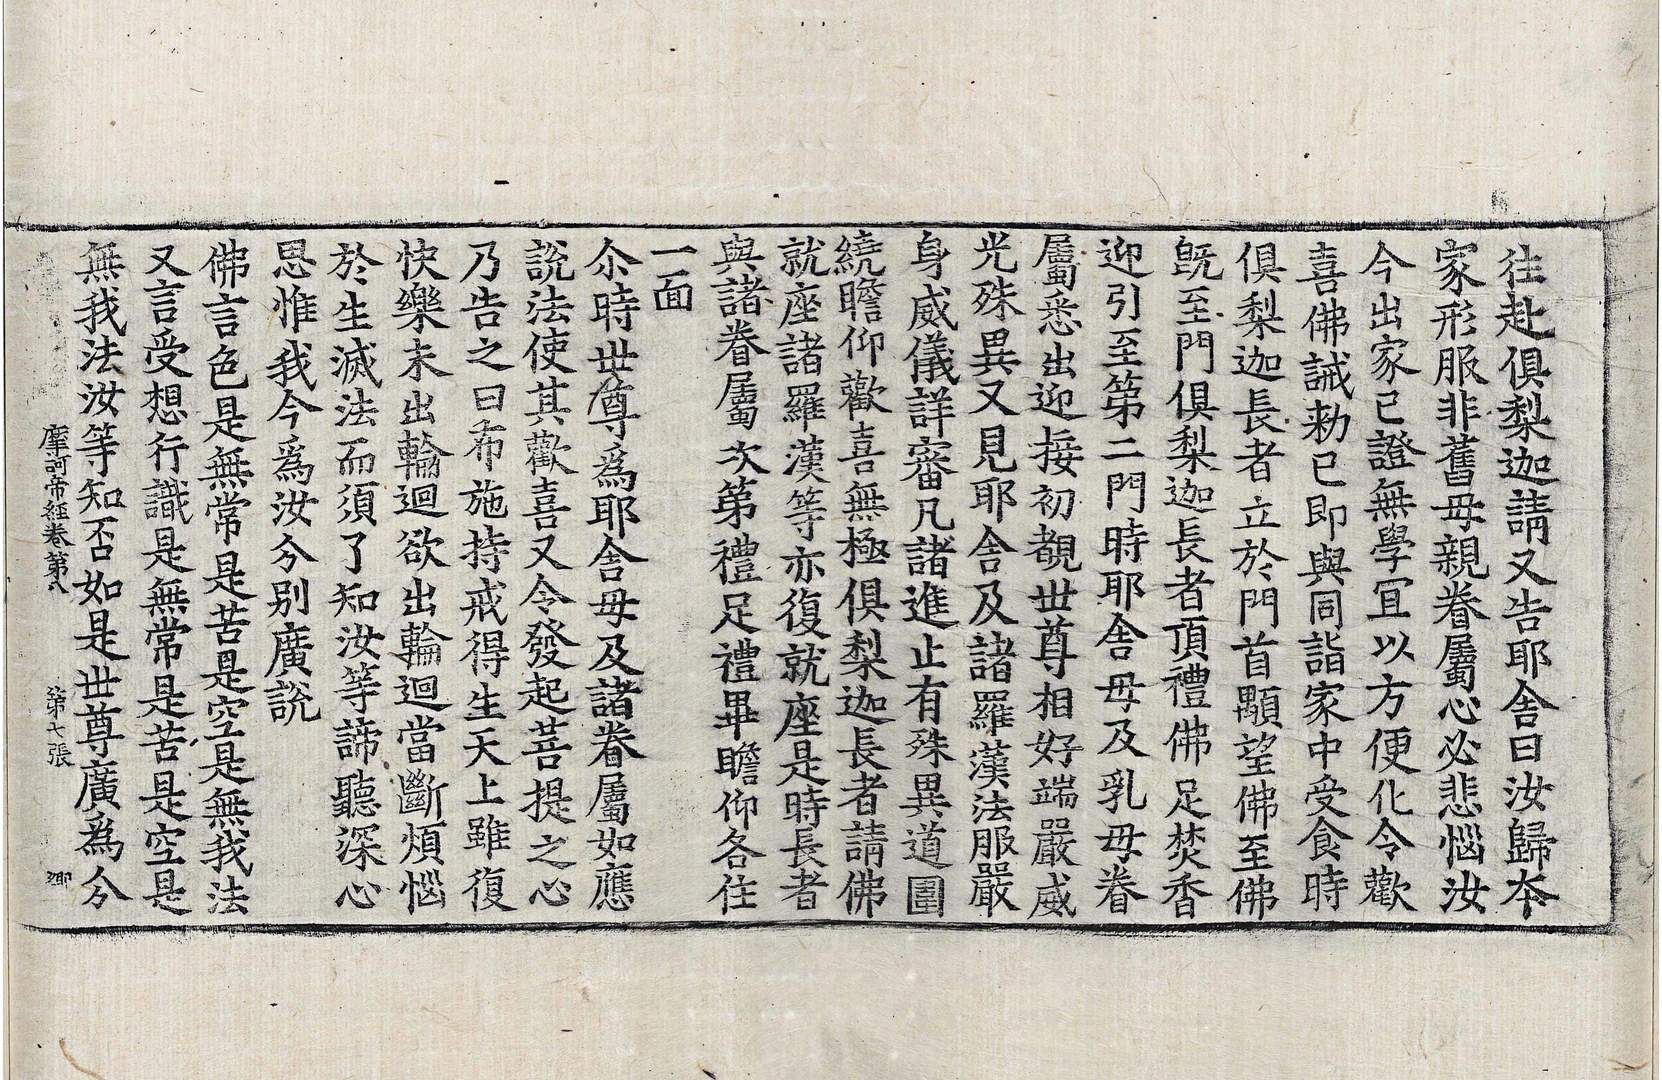 往赴俱梨迦請又告耶舍曰汝歸本
家形服非舊母親眷屬心必悲惱汝
今出家已證無學宜以方便化令歡
喜佛誡勅已即與同詣家中受食時
俱梨迦長者立於門首顒望佛至佛
既至門俱梨迦長者頂禮佛足焚香
迎引至第二門時耶舍母及乳母眷
屬悉出迎接初覩世尊相好端嚴威
光殊異又見耶舍及諸羅漢法服嚴
身威儀詳審凡諸進止有殊異道圍
繞瞻仰歡喜無極俱梨迦長者請佛
就座諸羅漢等亦復就座是時長者
與諸眷屬次第禮足禮畢瞻仰各住
一面
尒時世尊為耶舍母及諸眷屬如應
說法使其歡喜又令發起菩提之心
乃告之曰布施持戒得生天上雖復
快樂未出輪迴欲出輪迴當斷煩惱
於生滅法而須了知汝等諦聽深心
思惟我今為汝分別廣說
佛言色是無常是苦是空是無我法
又言受想行識是無常是苦是空是
無我法汝等知否如是世尊廣為分
摩訶帝經卷第八 第七張 卿